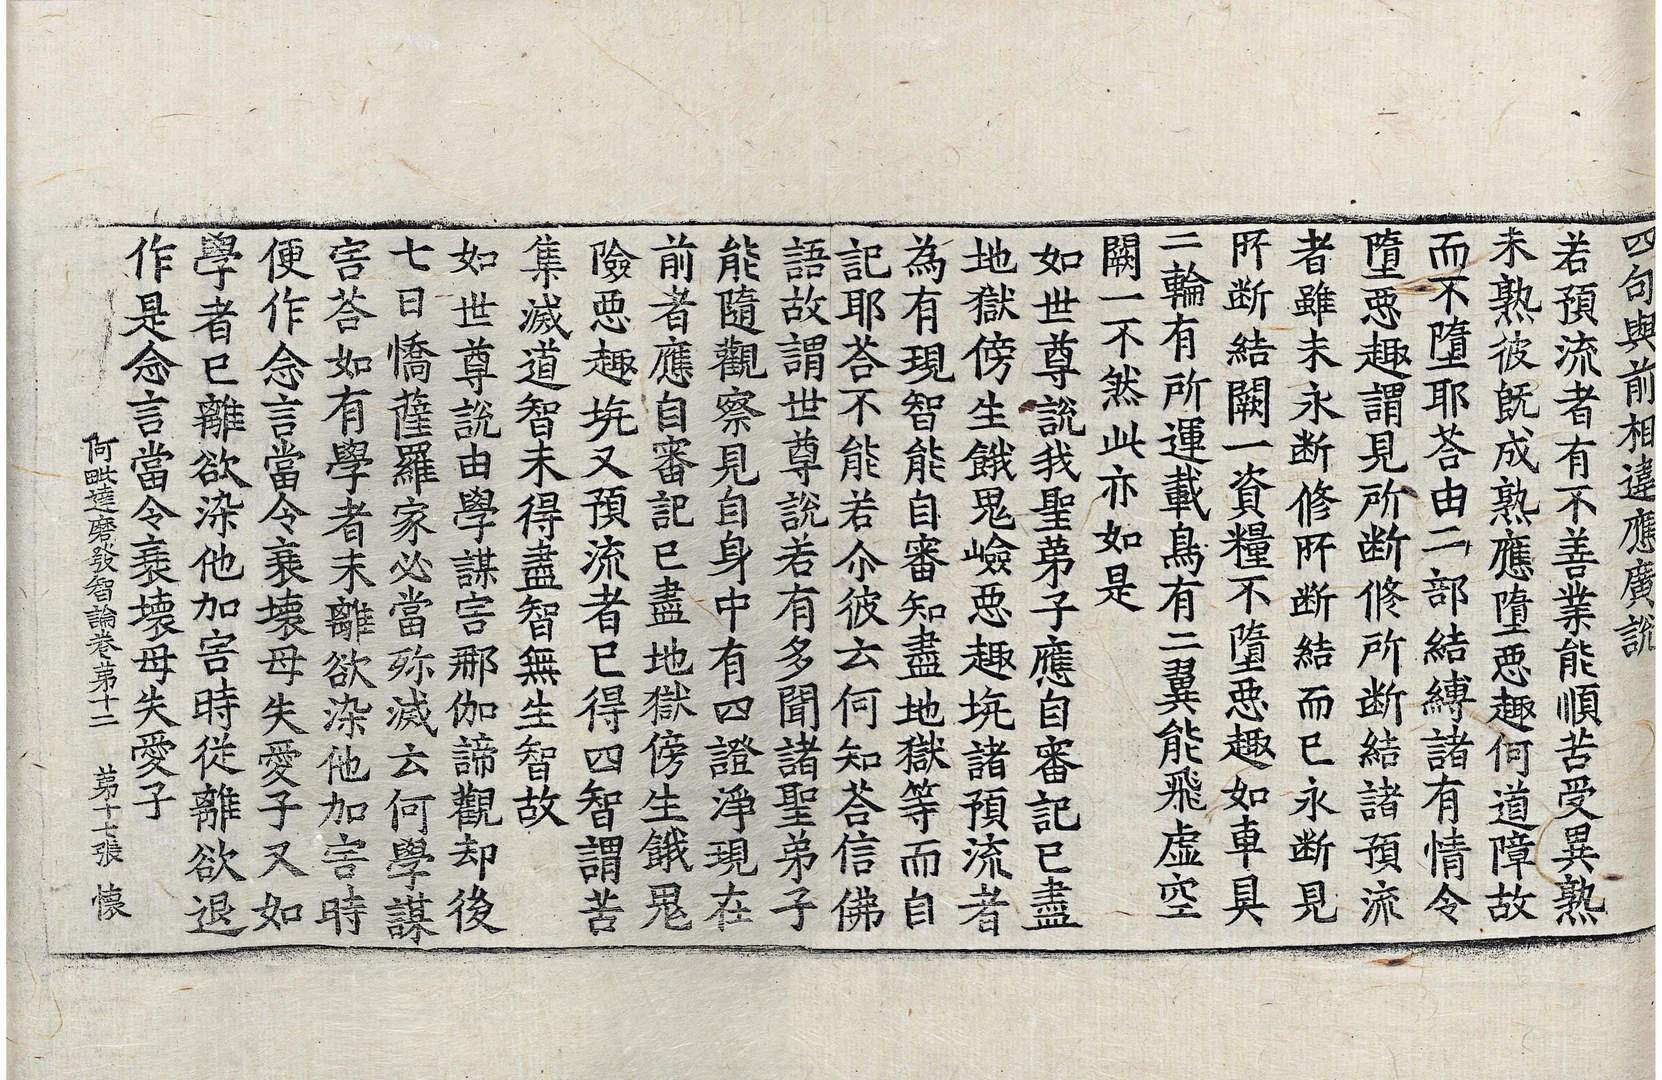 四句與前相違應廣說
若預流者有不善業能順苦受異熟
未熟彼旣成熟應墮惡趣何道障故
而不墮耶荅由二部結縛諸有情令
墮惡趣謂見所断修所断結諸預流
者雖未永断修所断結而已永断見
所断結闕一資糧不墮惡趣如車具
二輪有所運載鳥有二翼能飛虛空
闕一不然此亦如是
如世尊說我聖弟子應自審記已盡
地獄傍生餓鬼嶮惡趣坑諸預流者
為有現智能自審知盡地獄等而自
記耶荅不能若尒彼云何知荅信佛
語故謂世尊說若有多聞諸聖弟子
能隨觀察見自身中有四證淨現在
前者應自審記已盡地獄傍生餓鬼
險惡趣坑又預流者已得四智謂苦
集滅道智未得盡智無生智故
如世尊說由學謀害那伽諦觀却後
七日憍薩羅家必當殄滅云何學謀
害荅如有學者未離欲染他加害時
便作念言當令衰壞母失愛子又如
學者已離欲染他加害時從離欲退
作是念言當令衰壞母失愛子
阿毗達磨發智論卷第十二 第十七張 懷